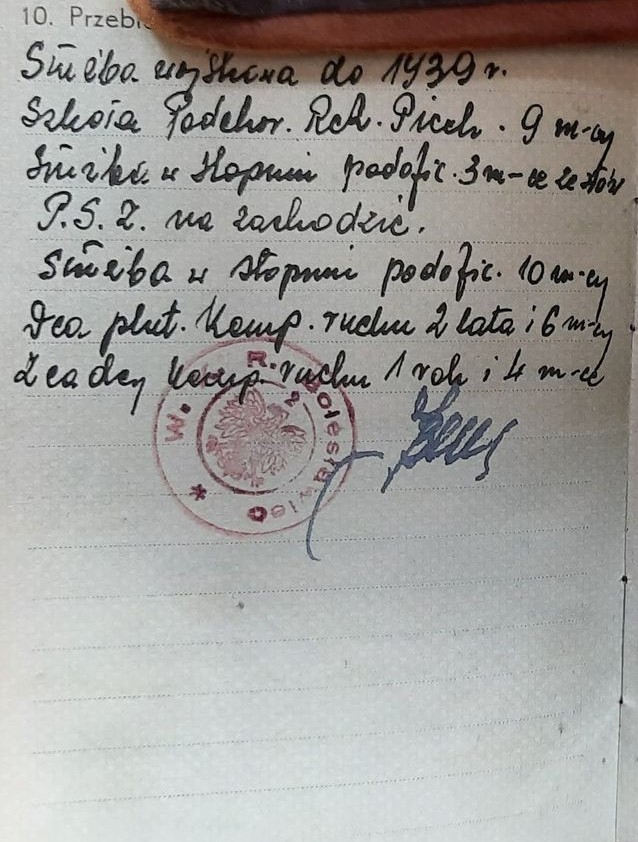 10. Przebi
Służba wojskowa do 1939 r.
Szkoła Podchor. Rez. Piech. 9 m-cy
Służba w stopniu podofic. 3 m-ce
P.S.Z. na zachodzie.
Służba w stopniu podofic. 10 m-cy
Dca plut. Komp. ruchu 2 lata i 6 m-cy
Z-ca dcy Komp. ruchu 1 rok i 4 m-ce
W. R. Bolesławiec *